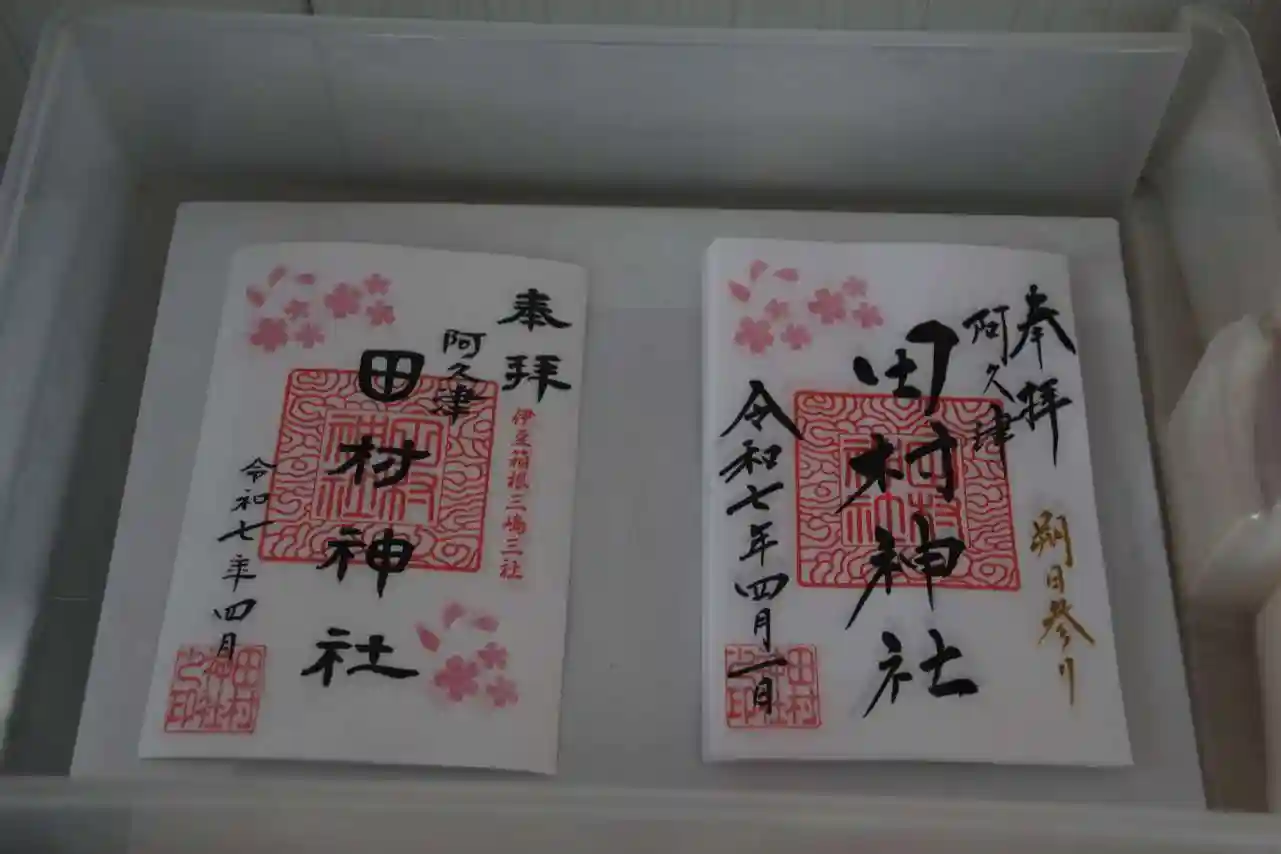 奉拝
伊豆箱根三嶋三社
阿久津
田村神社
令和七年四月
田村神社之印
奉拝
朔日参り
阿久津
田村神社
令和七年四月一日
田村神社之印